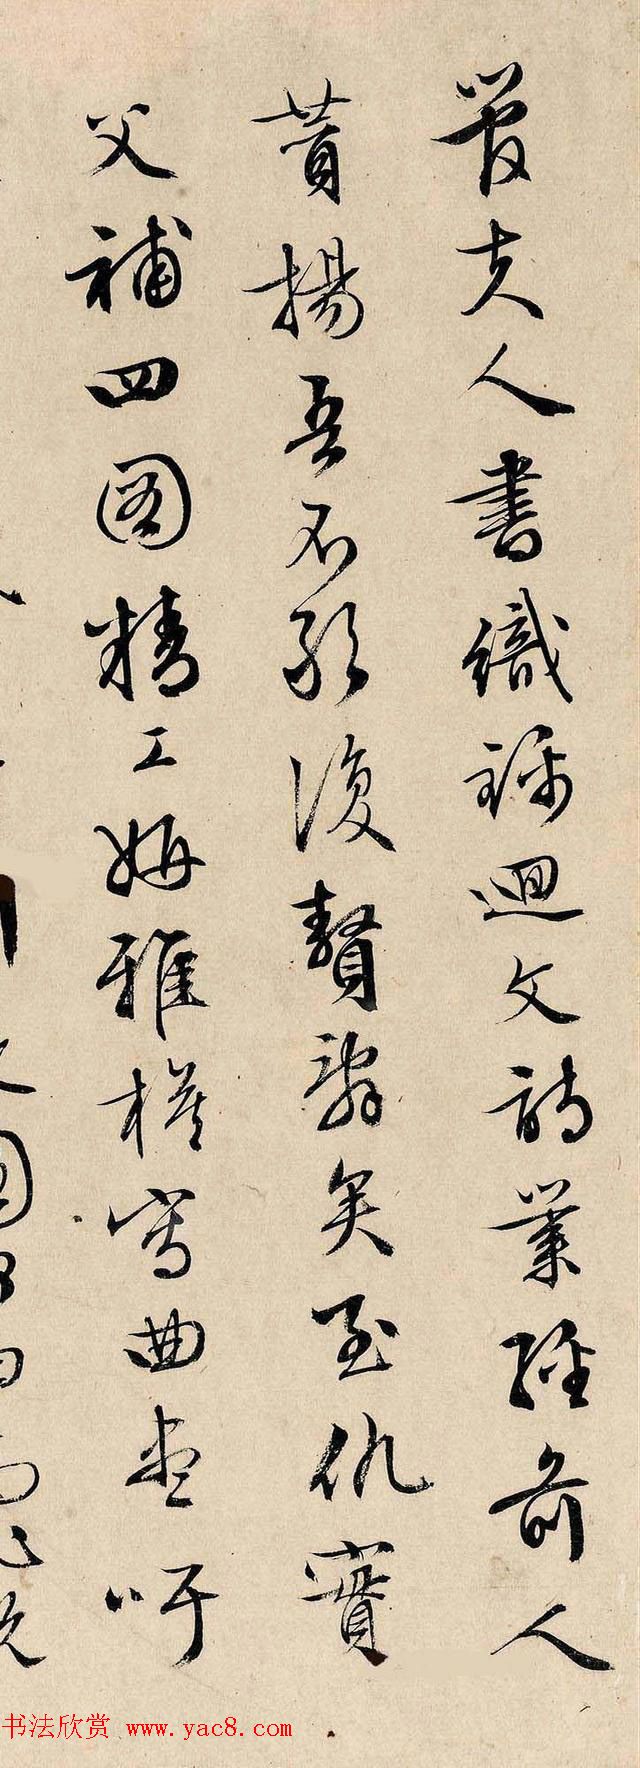 管夫人書織錦迴文詩業經前人
賛揚吾不能復贅辭矣至仇實
父補四圖精工妍雅模寫曲盡吁
书法欣赏 www.yac8.com